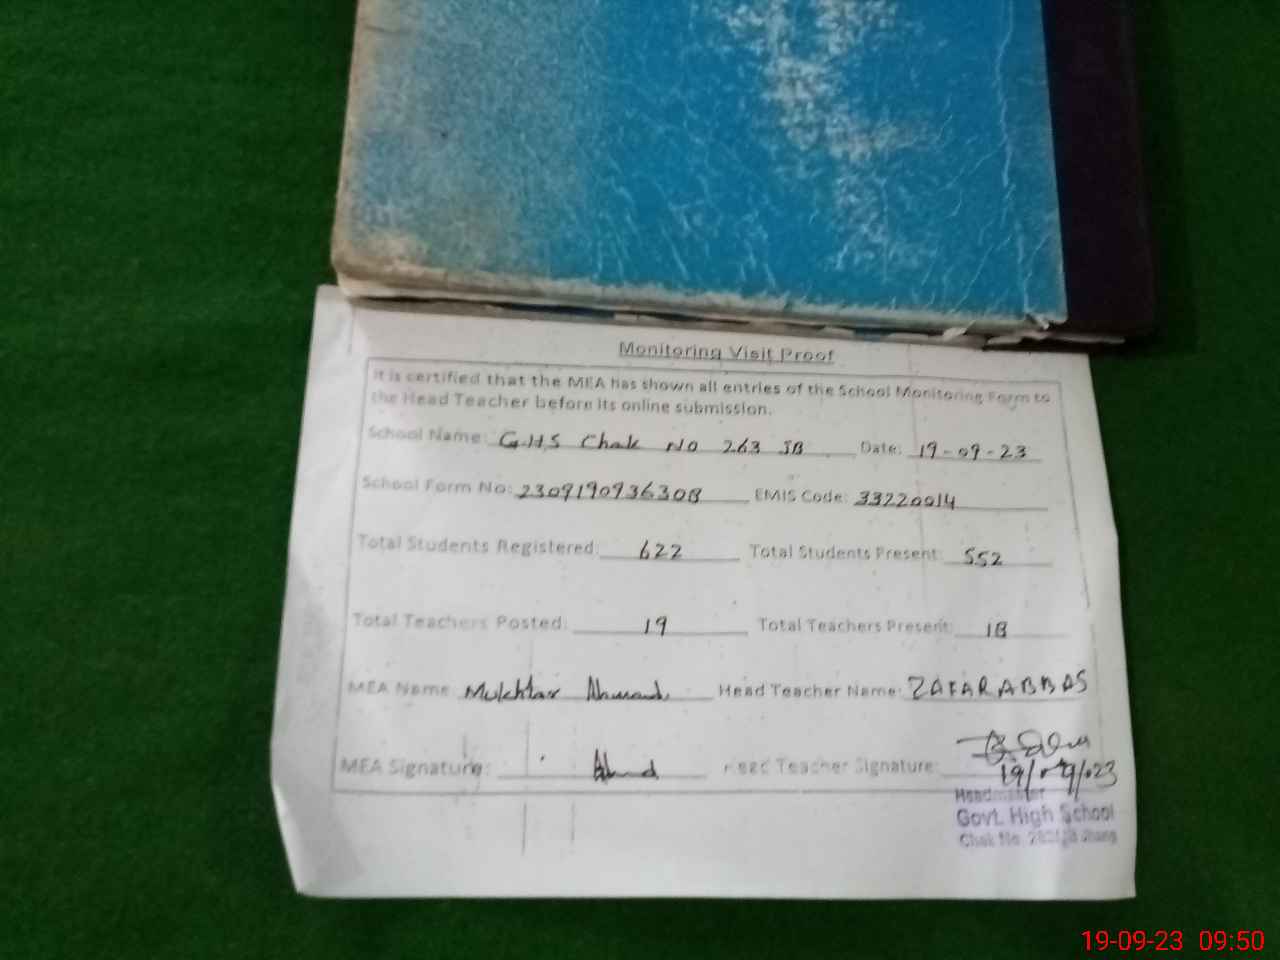 Monitoring Visit Proof
It is certified that the MEA has shown all entries of the School Monitoring Form to
the Head Teacher before its online submission.
School Name: G.H.S Chak NO 263 JB Date: 19-09-23
School Form No: 2309190936308 EMIS Code: 33220014
Total Students Registered: 622 Total Students Present: 552
Total Teachers Posted: 19 Total Teachers Present: 18
MEA Name Mukhtar Ahmad Head Teacher Name: ZAFAR ABBAS
MEA Signature: Head Teacher Signature:
19/09/023
Headmaster
Govt. High School
Chak No. Jhang
19-09-23 09:50